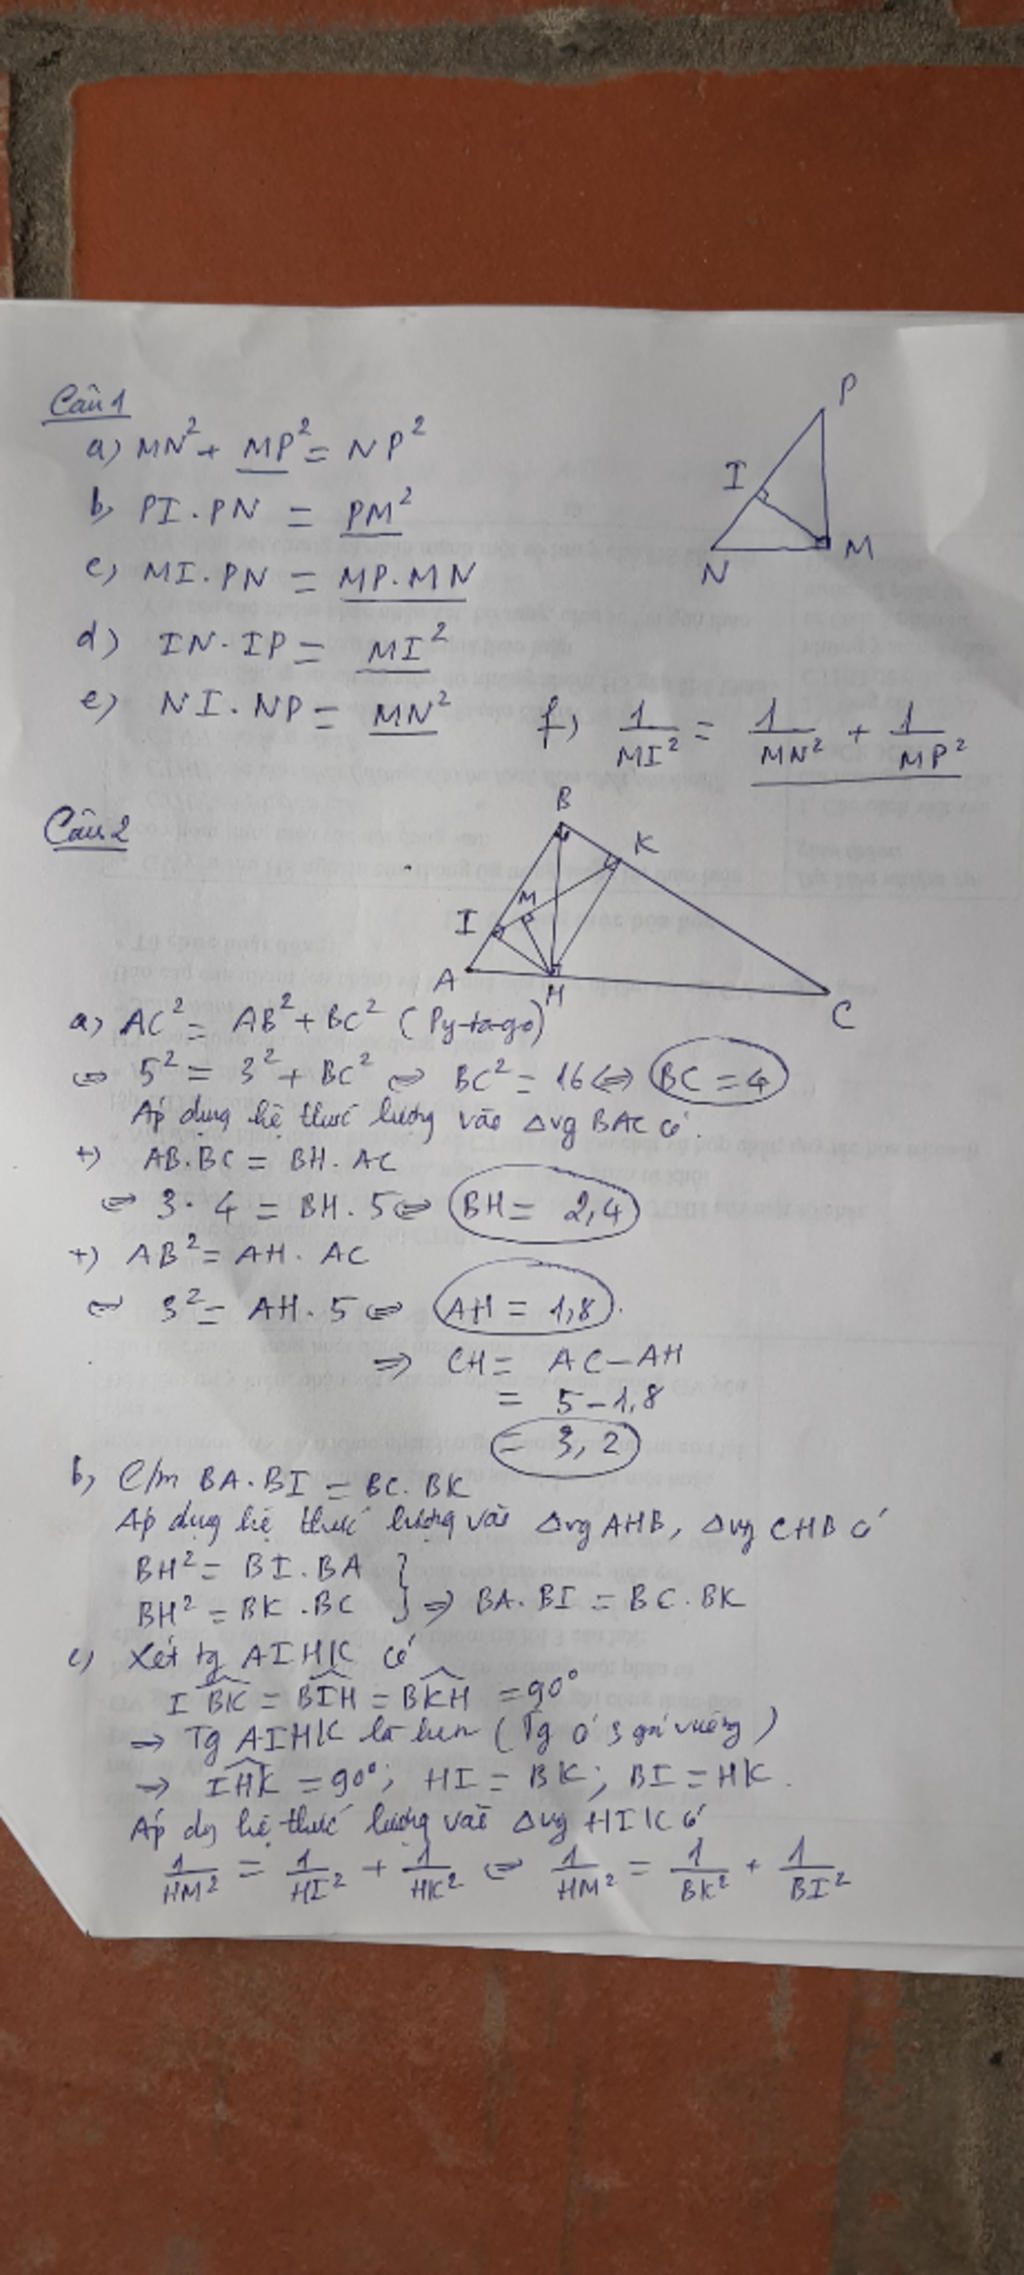 Câu 1
a) MN² + MP² = NP²
b, PI.PN = PM²
c, MI.PN = MP.MN
d) IN.IP = MI²
e) NI.NP = MN²
f, 1/MI² = 1/MN² + 1/MP²
P
I
N
M
Câu 2
B
K
M
I
A
H
C
a) AC² = AB² + BC² (Py-ta-go)
⇔ 5² = 3² + BC² ⇔ BC² = 16 ⇔ BC = 4
Áp dụng hệ thức lượng vào Δvg BAC có
+) AB.BC = BH.AC
⇔ 3.4 = BH.5 ⇔ BH = 2,4
+) AB² = AH.AC
⇔ 3² = AH.5 ⇔ AH = 1,8.
⇒ CH = AC - AH
= 5 - 1,8
= 3,2
b, C/m BA.BI = BC.BK
Áp dụng hệ thức lượng vào Δvg AHB, Δvg CHB có
BH² = BI.BA
BH² = BK.BC } ⇒ BA.BI = BC.BK
c) Xét tg AIHK có
IBK = BIH = BKH = 90°
⇒ Tg AIHK là hcn (Tg có 3 góc vuông)
⇒ IHK = 90°; HI = BK; BI = HK.
Áp dg hệ thức lượng vào Δvg HIK có
1/HM² = 1/HI² + 1/HK² ⇔ 1/HM² = 1/BK² + 1/BI²